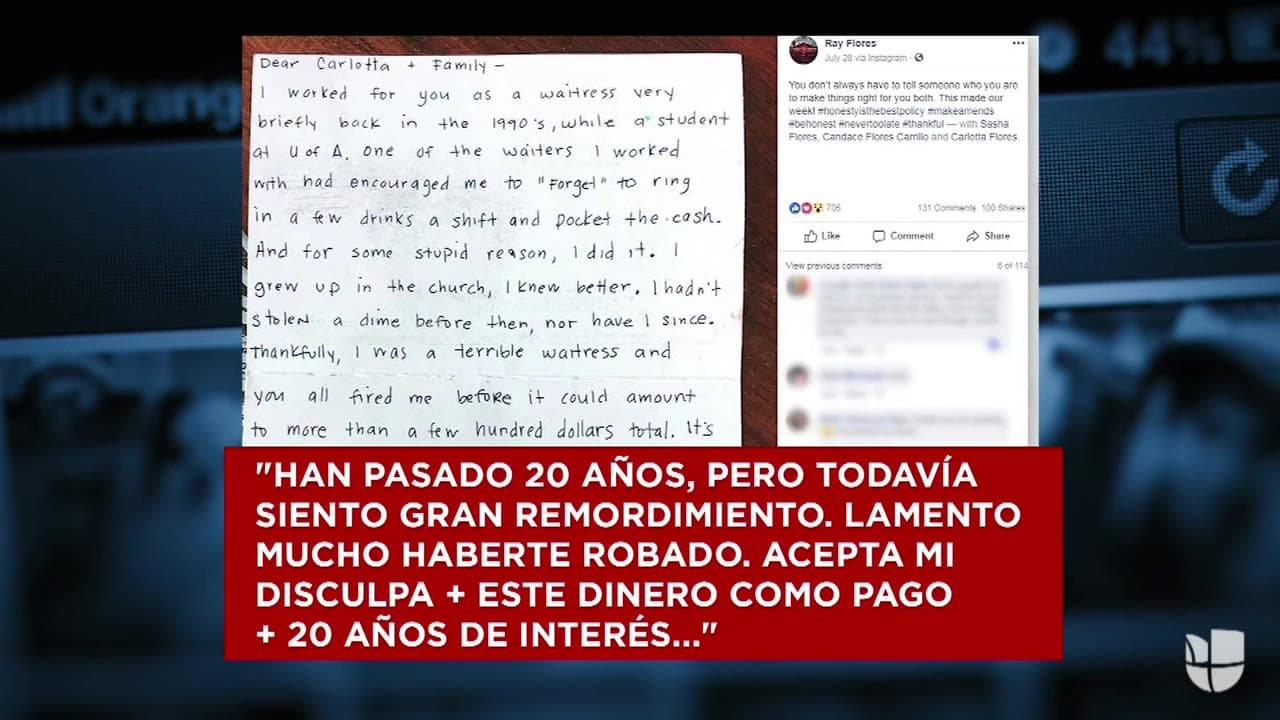 44%
Dear Carlotta + Family -
I worked for you as a waitress very
briefly back in the 1990's, while a student
at U of A. One of the waiters I worked
with had encouraged me to "Forget" to ring
in a few drinks a shift and pocket the cash.
And for some stupid reason, I did it. I
grew up in the church, I knew better. I hadn't
stolen a dime before then, nor have I since.
Thankfully, I was a terrible waitress and
you all fired me before it could amount
to more than a few hundred dollars total. It's
Ray Flores
July 28 via Instagram ·
You don't always have to tell someone who you are
to make things right for you both. This made our
week! #honestyisthebestpolicy #makeamends
#behonest #nevertoolate #thankful — with Sasha
Flores, Candace Flores Carrillo and Carlotta Flores.
706 131 Comments 100 Shares
Like Comment Share
View previous comments 6 of 114
"HAN PASADO 20 AÑOS, PERO TODAVÍA
SIENTO GRAN REMORDIMIENTO. LAMENTO
MUCHO HABERTE ROBADO. ACEPTA MI
DISCULPA + ESTE DINERO COMO PAGO
+ 20 AÑOS DE INTERÉS..."